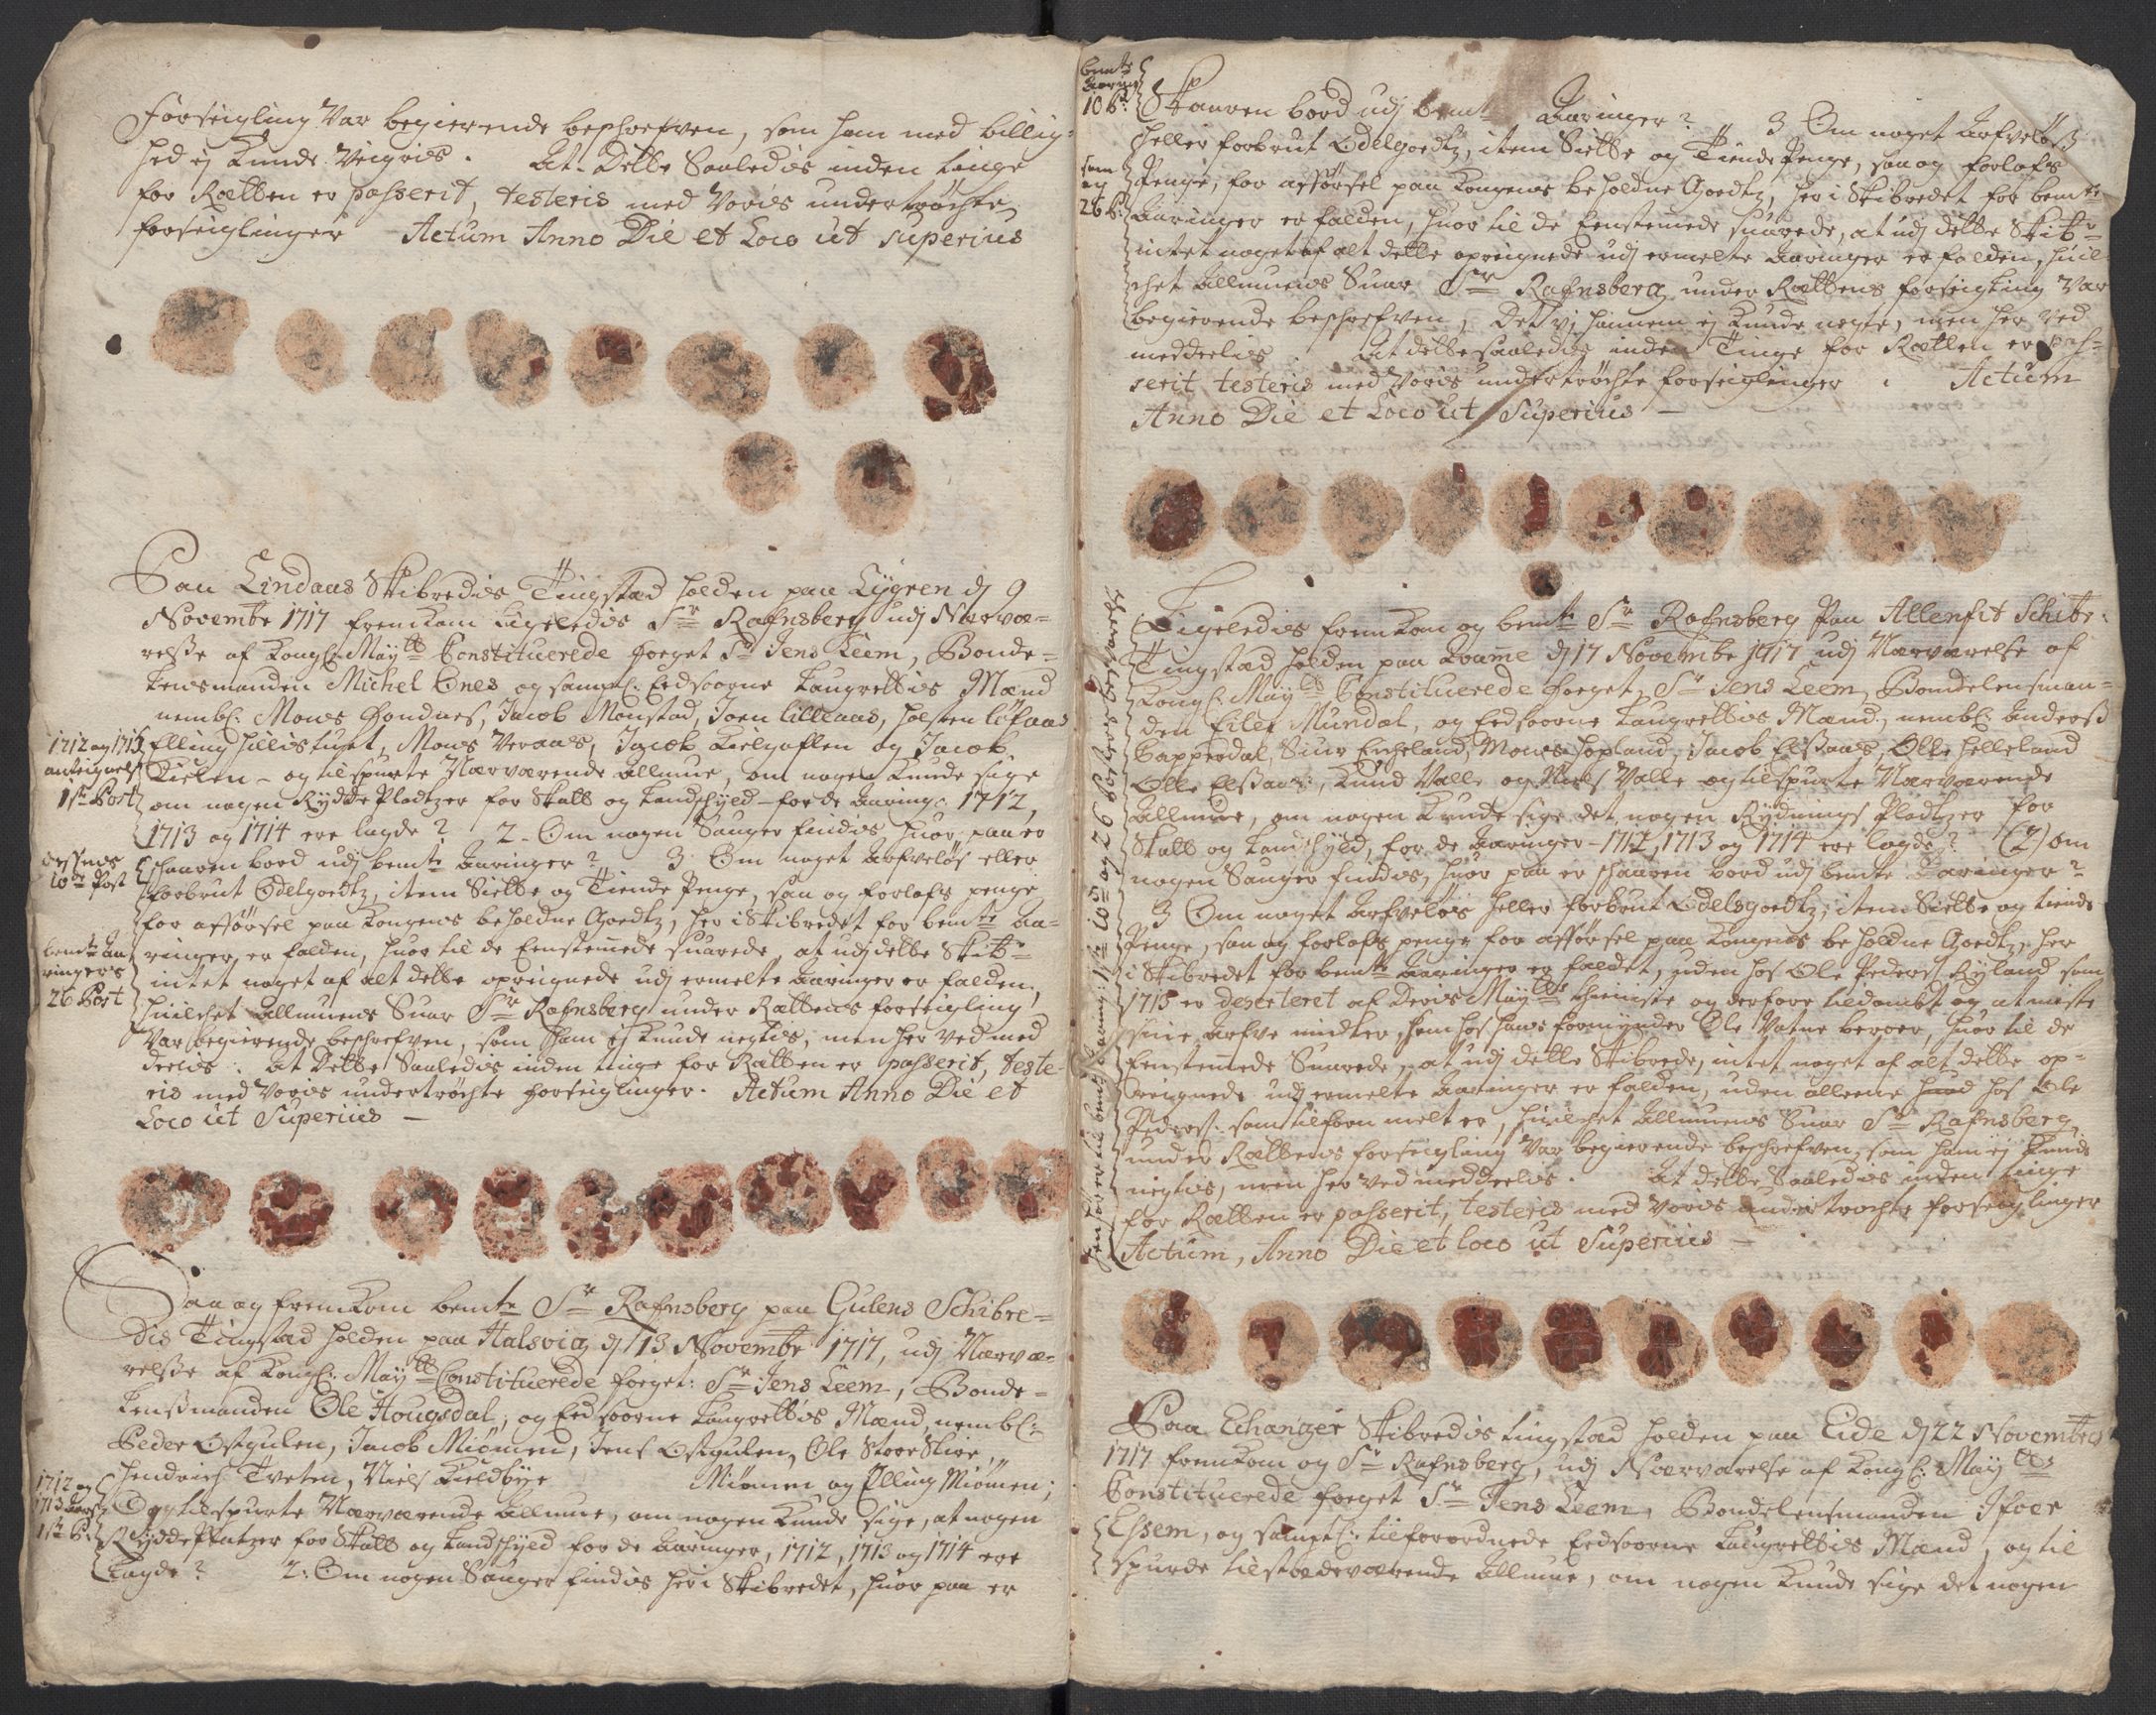 Forseigling Var begierende beschrefven, som ham med billig=
hed ej Kunde Veigris. At Dette Saaledis inden tinge
for Rætten er passerit, testeris med Voris undertröchte
forseiglinger Actum Anno Die et Loco ut superius
Paa Lindaas Skibredis Tingstad holden paa Lygren dj 9
Novembr 1717 fremkom Ligeledis Sr Rafnsberg udj Nærvæ=
relsse af Kongl: Maytts Constituerede foeget Sr Jens Leem, Bonde=
Lensmanden Michel Ones og sampl: Eedsoorne Laugrettis Mænd
nembl: Mons Fondnes, Jacob Monstad, Joen Lilleaas, holsten Löfaas
Elling hillistuet, Mons Veraas, Jacob Kielgaflen og Jacob
Kielen - og tilspurte Nærværende Allmue, om nogen Kunde sige
om nogen Rydde Pladtzer for Skatt og Landschyld for de Aaringer 1712,
1713 og 1714 ere lagde? 2. Om nogen Sauger findis huor paa er
schaaren bord udj bemte Aaringer? 3 Om noget Arfvelös eller
forbrut Odelgoedtz, item Siette og Tiende Penge, saa og forlofs penge
for afförsel paa Kongens beholdne Goedtz, her i Skibredet for bemte Aa=
ringer er falden, huor til de Eenstemmede suarede at udj dette Skibr=
intet noget af alt dette opreignede udj ermelte Aaringer er falden,
huilchet Allmuens Suar Sr Rafnsberg under Rættens forseigling
Var begierende beschrefven, som ham ej Kunde negtis, men her Ved med
deelis. At Dette Saaledis inden tinge for Rætten er passerit, teste=
ris med Voris undertröchte forseiglinger. Actum Anno Die et
Loco ut Superius —
1712 og 1713
anteignels
1ste Post
dessens
10de Post
bemte Aa
ringers
26 Post
Saa og fremkom bemte Sr Rafnsberg paa Gulens Schibre=
dis Tingstad holden paa Halsvig dj 13 Novembr 1717, udj Nærvæ=
relsse af Kongl: Maytts Constituerede foeget: Sr Jens Leem, Bonde=
Lenssmanden Ole Hougsdal, og Eedsoorne Laugrettis Mænd, nembl:
Peder Ostgulen, Jacob Miömen, Jens Ostgulen, Ole Stoer
Hendrich Tveten, Niels Kieldbye Miömen og Elling Miömen;
Og tilspurte Nærværende Allmue, om nogen Kunde sige, at nogen
Ryddepladtzer for Skatt og Landschyld for de Aaringer, 1712, 1713 og 1714 ere
Lagde? 2: Om nogen Sauger findis her i Skibredet, huor paa er
1712 og
1713
1ste P:
bemte
Aaring
10 P:
som
og
26 P:
Skaaren bord udj bemte Aaringer? 3 Om noget Arfvelöss
heller forbrut Odelgoedtz, item Siette og Tiende Penge, saa og forlofs
Penge, for afförsel paa Kongens beholdne Goedtz, her i Skibredet for bemte
Aaringer er falden, huor til de Eenstemmede suarede, at udj dette Skibr=
intet noget af alt dette opreignede udj ermelte Aaringer er falden, huil
chet Allmuens Suar Sr Rafnsberg under Rættens forseigling Var
begierende beschrefven, Det vj hannem ej Kunde negte, men her Ved
meddeelis. At dette saaledis inden Tinge for Rætten er pas=
serit testeris med Voris undertröchte forseiglinger. Actum
Anno Die et Loco ut Superius —
Ligeledis fremkom og bemte Sr Rafnsberg Paa Allenfit Schibr:
Tingstad holden paa Qvamme dj 17 Novembr 1717 udj Nærværelse af
Kongl: Maytts Constituerede foeget, Sr Jens Leem, Bondelensman=
den Eiler Mundal, og Eedsoorne Laugrettis Mænd, nembl: Anderss
Tapperdal, Siur Eicheland, Mons Hopland, Jacob Elssaas, Olle Helleland
Olle Elssaas, Knud Valle og Niels Valle og tilspurte Nærværende
Allmue, om nogen Kunde sige det nogen Rydnings Pladtzer for
Skatt og Landschyld, for de Aaringer 1712, 1713 og 1714 ere lagde? (2) om
nogen Sauger findis, huor paa er schaaren bord udj bemte Aaringer?
3 Om noget Arfvelös heller forbrut Odelsgoedtz, item Siette og tiende
Penge, saa og forlofs penge for afförsel paa Kongens beholdne Goedtz, her
i Skibredet for bemte Aaringer er faldet, uden hos Ole Peders: Ryland som
1713 er deserteret af Deris Maytts thieniste og derfore tildömbt og at miste
siine Arfve midler, som hos hans formynder Ole Vatne beroer, huor til de
Eenstemmede Suarede, at udj dette Skibrede, intet noget af alt dette op=
reignede udj ermelte Aaringer er falden, uden alleene hos Ole
Peders: som tilforn melt er, huilchet Allmuens Suar Sr Rafnsberg
under Rættens forseigling Var begierende beschrefven, som ham ej Kunde
nigtis, men her Ved meddeelis. At dette Saaledis inden tinge
for Rætten er passerit, testeris med Voris undertröchte forseiglinger
Actum, Anno Die et loco ut Superius —
10de og 26 Poster
Paa Echanger Skibredis tingstad holden paa Eide dj 22 Novembris
1717 fremkom og Sr Rafnsberg, udj Nærværelse af Kongl: Maytts
Constituerede foeget Sr Jens Leem, Bondelensmanden Ifver
Essem, og samptl: tilforordnede Eedsoorne Laugrettis Mænd, og til
spurde tilstædeværende Allmue, om nogen Kunde sige det nogen